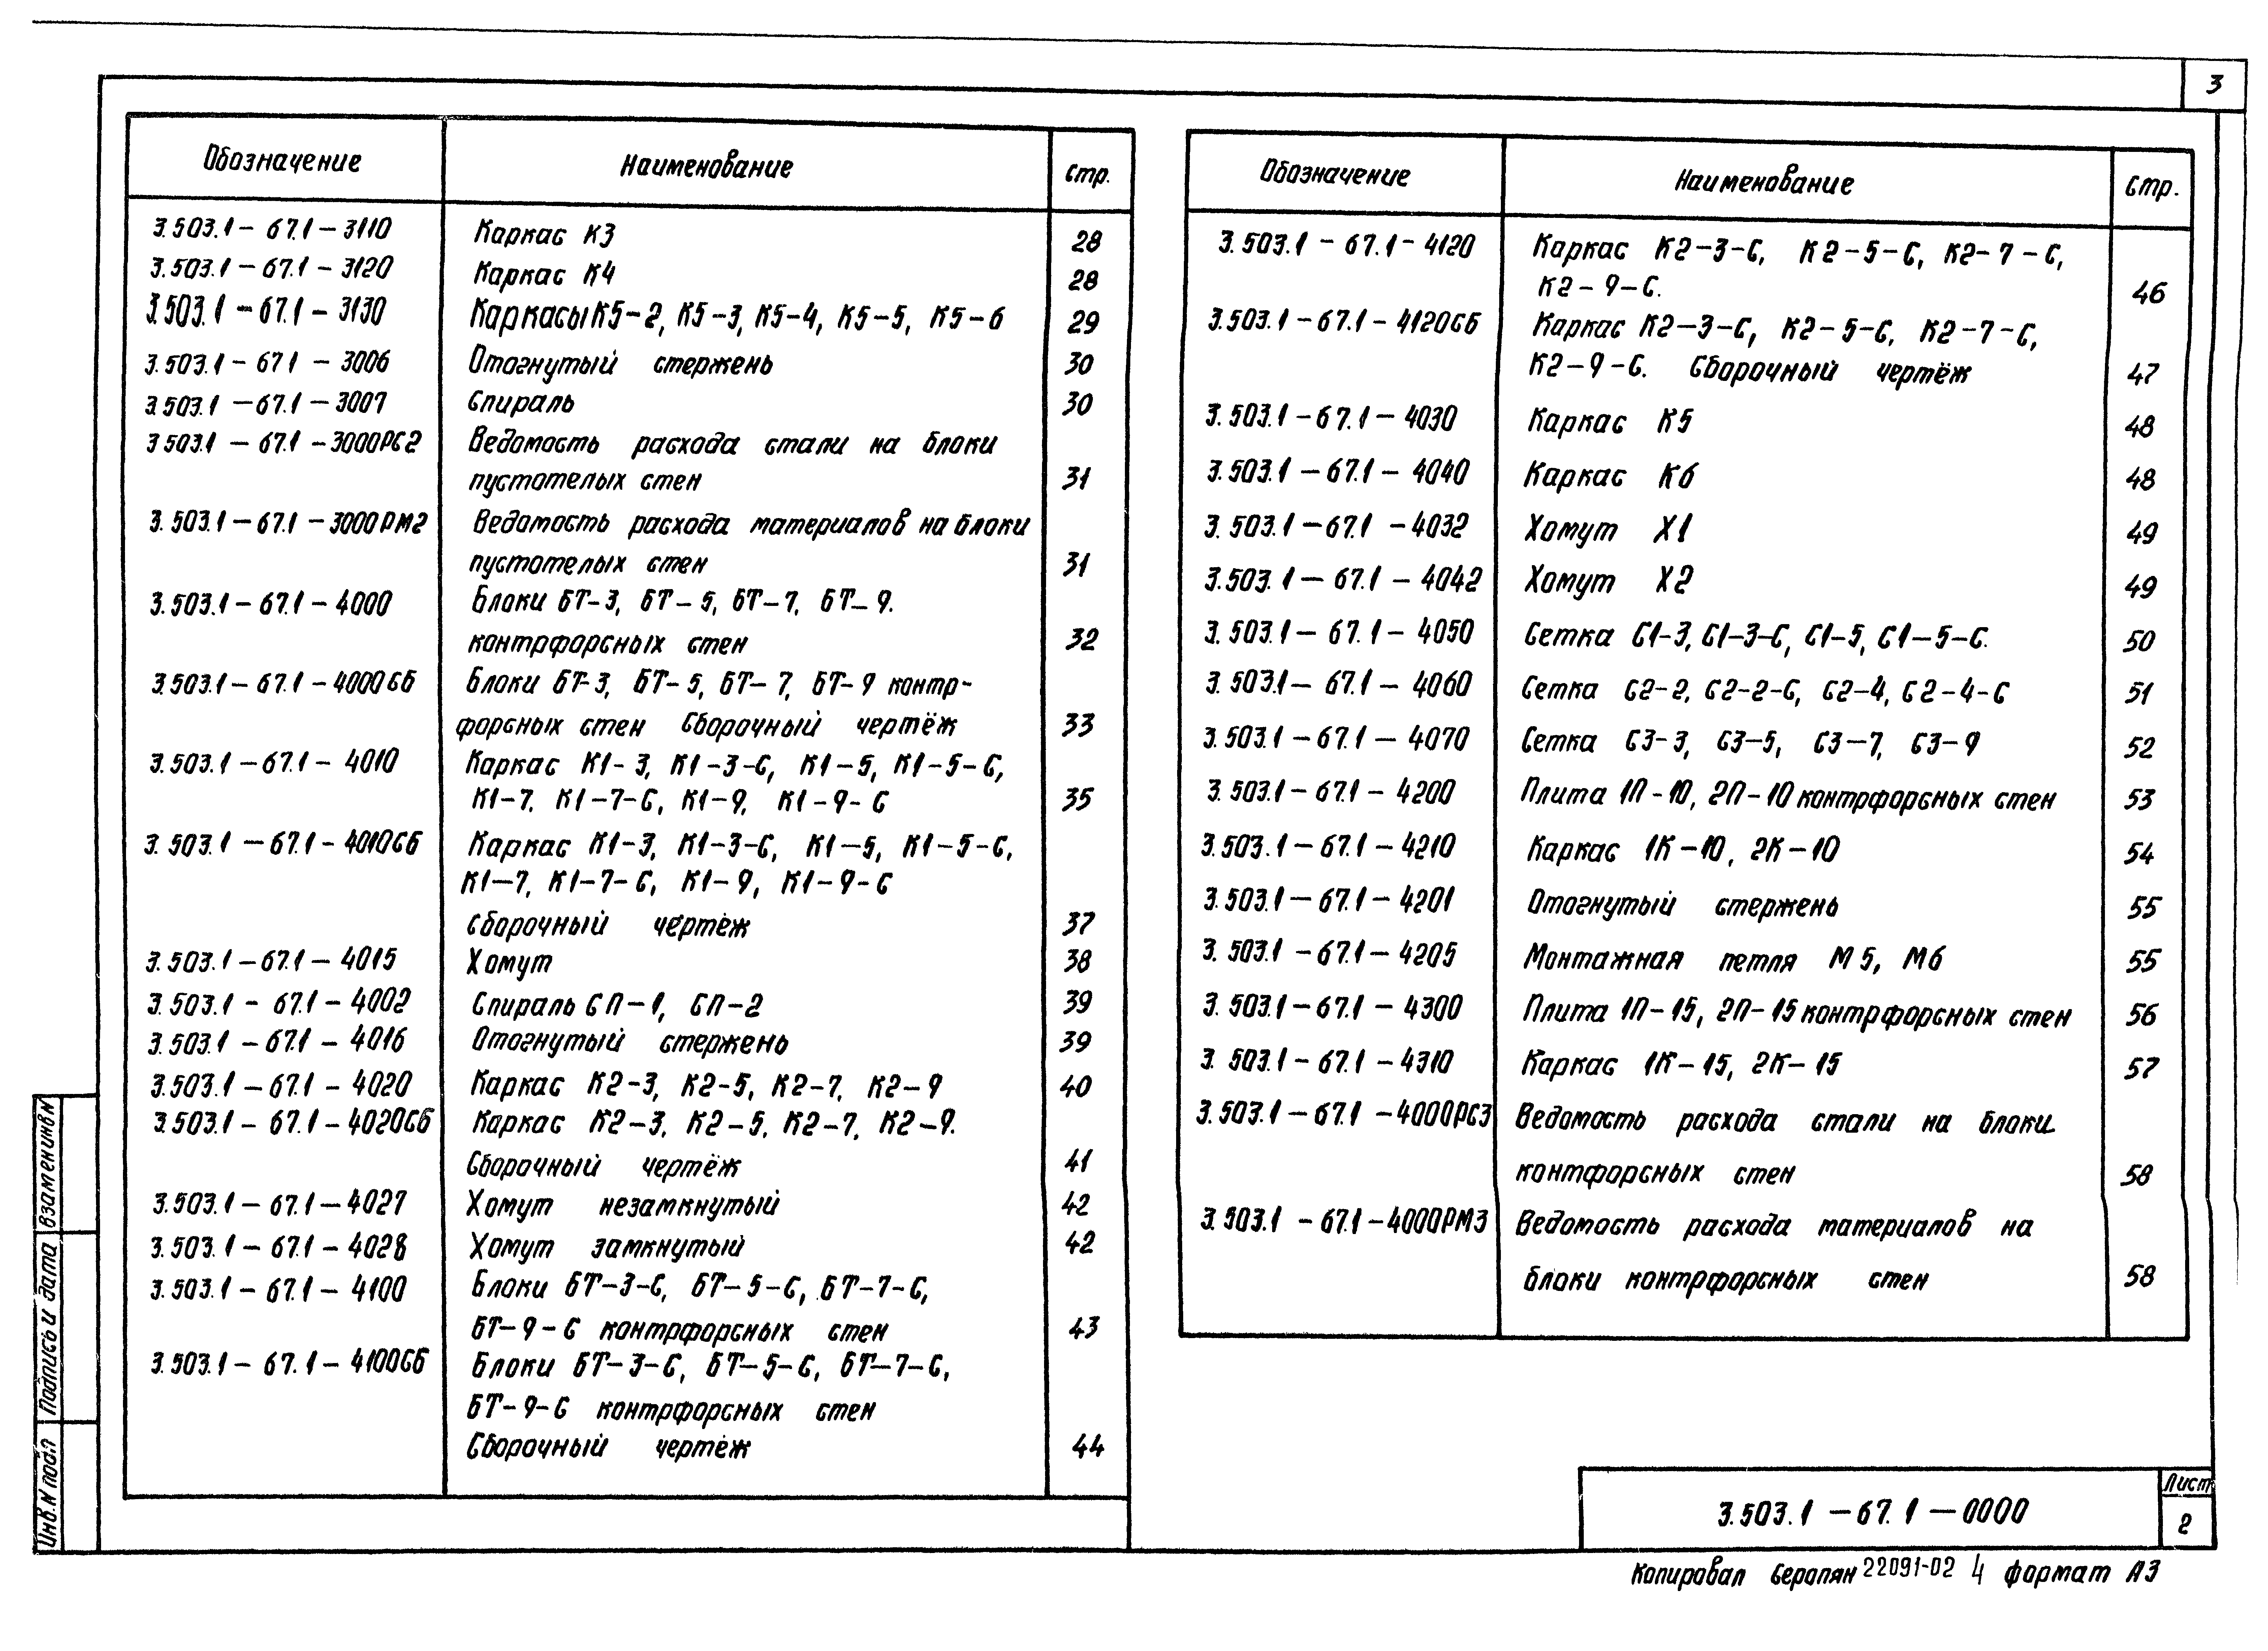 3
Обозначение Наименование Стр.
3.503.1-67.1-3110 Каркас К3 28
3.503.1-67.1-3120 Каркас К4 28
3.503.1-67.1-3130 Каркасы К5-2, К5-3, К5-4, К5-5, К5-6 29
3.503.1-671-3006 Отогнутый стержень 30
3.503.1-67.1-3007 Спираль 30
3503.1-67.1-3000РС2 Ведомость расхода стали на блоки
пустотелых стен 31
3.503.1-67.1-3000РМ2 Ведомость расхода материалов на блоки
пустотелых стен 31
3.503.1-67.1-4000 Блоки БТ-3, БТ-5, БТ-7, БТ-9.
контрфорсных стен 32
3.503.1-67.1-4000СБ Блоки БТ-3, БТ-5, БТ-7, БТ-9 контр-
форсных стен Сборочный чертёж 33
3.503.1-67.1-4010 Каркас К1-3, К1-3-С, К1-5, К1-5-С,
К1-7, К1-7-С, К1-9, К1-9-С 35
3.503.1-67.1-4010СБ Каркас К1-3, К1-3-С, К1-5, К1-5-С,
К1-7, К1-7-С, К1-9, К1-9-С
сборочный чертёж 37
3.503.1-67.1-4015 Хомут 38
3.503.1-67.1-4002 Спираль СП-1, СП-2 39
3.503.1-67.1-4016 Отогнутый стержень 39
3.503.1-67.1-4020 Каркас К2-3, К2-5, К2-7, К2-9 40
3.503.1-67.1-4020СБ Каркас К2-3, К2-5, К2-7, К2-9.
Сборочный чертёж 41
3.503.1-67.1-4027 Хомут незамкнутый 42
3.503.1-67.1-4028 Хомут замкнутый 42
3.503.1-67.1-4100 Блоки БТ-3-С, БТ-5-С, БТ-7-С,
БТ-9-С контрфорсных стен 43
3.503.1-67.1-4100СБ Блоки БТ-3-С, БТ-5-С, БТ-7-С,
БТ-9-С контрфорсных стен
Сборочный чертёж 44
Обозначение Наименование Стр.
3.503.1-67.1-4120 Каркас К2-3-С, К2-5-С, К2-7-С,
К2-9-С. 46
3.503.1-67.1-4120СБ Каркас К2-3-С, К2-5-С, К2-7-С,
К2-9-С. Сборочный чертёж 47
3.503.1-67.1-4030 Каркас К5 48
3.503.1-67.1-4040 Каркас К6 48
3.503.1-67.1-4032 Хомут Х1 49
3.503.1-67.1-4042 Хомут Х2 49
3.503.1-67.1-4050 Сетка С1-3, С1-3-С, С1-5, С1-5-С. 50
3.503.1-67.1-4060 Сетка С2-2, С2-2-С, С2-4, С2-4-С 51
3.503.1-67.1-4070 Сетка С3-3, С3-5, С3-7, С3-9 52
3.503.1-67.1-4200 Плита 1П-10, 2П-10 контрфорсных стен 53
3.503.1-67.1-4210 Каркас 1К-10, 2К-10 54
3.503.1-67.1-4201 Отогнутый стержень 55
3.503.1-67.1-4205 Монтажная петля М5, М6 55
3.503.1-67.1-4300 Плита 1П-15, 2П-15 контрфорсных стен 56
3.503.1-67.1-4310 Каркас 1К-15, 2К-15 57
3.503.1-67.1-4000РС3 Ведомость расхода стали на блоки
контфорсных стен 58
3.503.1-67.1-4000РМ3 Ведомость расхода материалов на
блоки контрфорсных стен 58
Инв.N подл Подпись и дата Взамен инв N
3.503.1-67.1-0000
Лист
2
Копировал Серопян 22091-02 4 формат А3